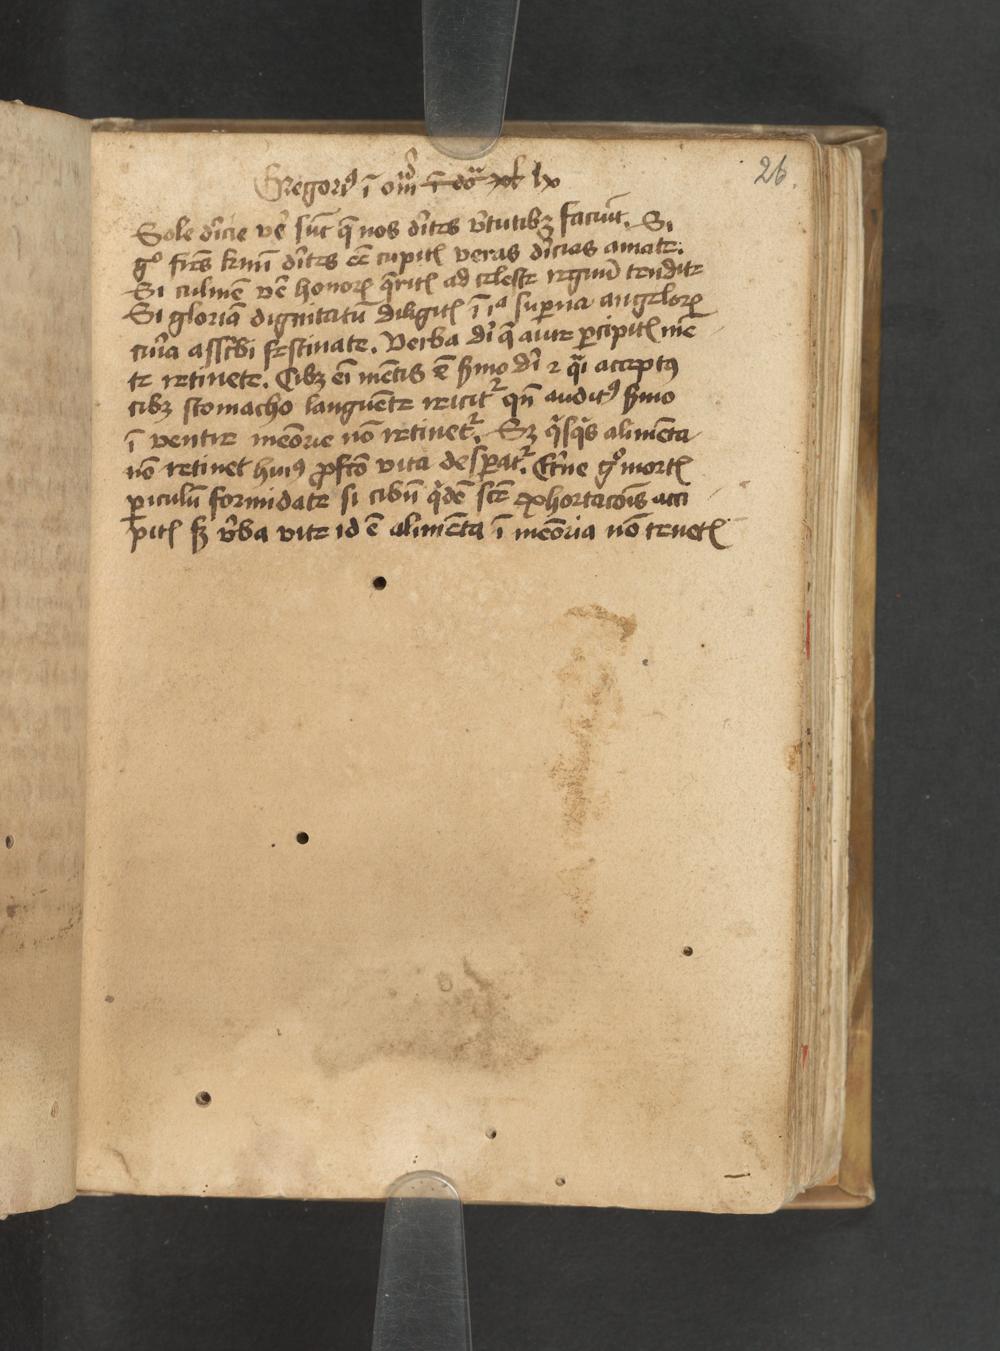 26.
Gregori9 ī om̄ lx
Sole dīcie ve᷑ su᷑t q̄ nos dītes v᷑tutibꝫ faciūt. Si
g° frēs km̄i dītes ēē cupitꝭ veras dīcias amate.
Si culmē ve᷑ honorꝝ q̄ritꝭ ad celeste regnū tendite
Si gloriā dignitatū diligitꝭ ī ia suꝑna angelorꝝ
cūia asscbi festinate. Verba dī q̄ aure ꝑcipitꝭ mē
te retinete. Cibꝫ eī mētis ē ẜmo dī ⁊ q̄i acceptꝰ
cibꝫ stomacho languēte reicit᷑ qn̄ auditꝰ ẜmo
ī ventre meōrie nō retinet᷑. Sꝫ q̄sq̄s alimēta
nō retinet huiꝰ ꝓfc̄o vita desꝑat᷑. Et᷑ne g° mortꝭ
ꝑiculū formidate si cibū q̇dē sc̄e exhortacōis acci
pitꝭ sꝫ v᷑ba vite id ē alimēta ī meōria nō tenetꝭ